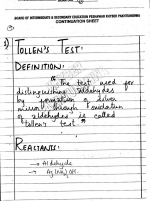 BOARD OF INTERMEDIATE & SECONDARY EDUCATION PESHAWAR KHYBER PAKHTUNKHWA
CONTINUATION SHEET
TOLLEN'S TEST:
DEFINITION:
"The test used for
distinguishing aldehydes
by formation of silver
mirror through oxidation
of aldehydes is called
tollen's test."
REACTANTS:
→ Aldehyde
→ Ag(NH3)2OH.